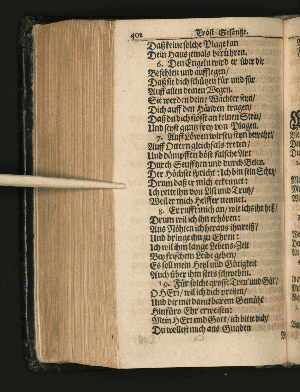 402 Trost-Gesänge.
Daß keine solche Plage kan
Dein Haus jemals berühren.
6. Den Engeln wird er über dir
Befehlen und aufflegen/
Daß sie dich schützen für und für
Auff allen deinen Wegen.
Sie werden deine Wächter seyn/
Dich auff den Händen tragen/
Daß du dich stössest an keinen Stein/
Und seyst gantz frey von Plagen.
7. Auff Löwen wirstu seyn bewehrt/
Auff Ottern gleichfals treten/
Und dämpffen böse falsche Art
Durch Seufftzen und durch Beten.
Der Höchste spricht: Ich bin sein Schutz/
Drum daß er mich erkennet:
Ich rette ihn von List und Trutz/
Weil er mich Helffer nennet.
8. Er rufft mich an/ wie ich ihn hiß/
Drum will ich ihn erhören:
Aus Nöhten ich heraus ihn reiß/
Und bringe ihn zu Ehren:
Ich will ihm lange Lebens-Zeit
Bey frischem Leibe geben/
Es soll mein Heyl und Gütigkeit
Auch über ihm stets schweben.
9. Für solche grosse Treu und Güt/
O HErr/ will ich dich preisen/
Und dir mit danckbarem Gemüht
Hinfüro Ehr erweisen:
Mein HErr und Gott/ ich bitte dich/
Du wollest mich aus Gnaden